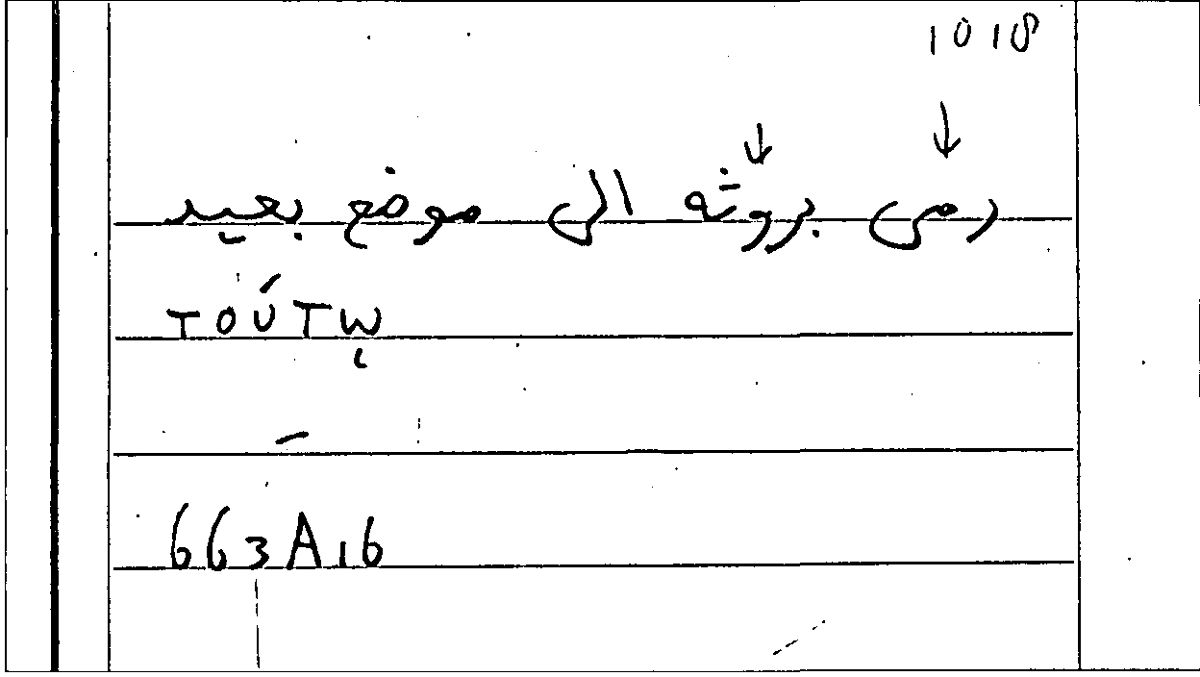 1018
↓ ↓
رمى بروثه الى موضع بعيد
TOÚTẈ
663A16